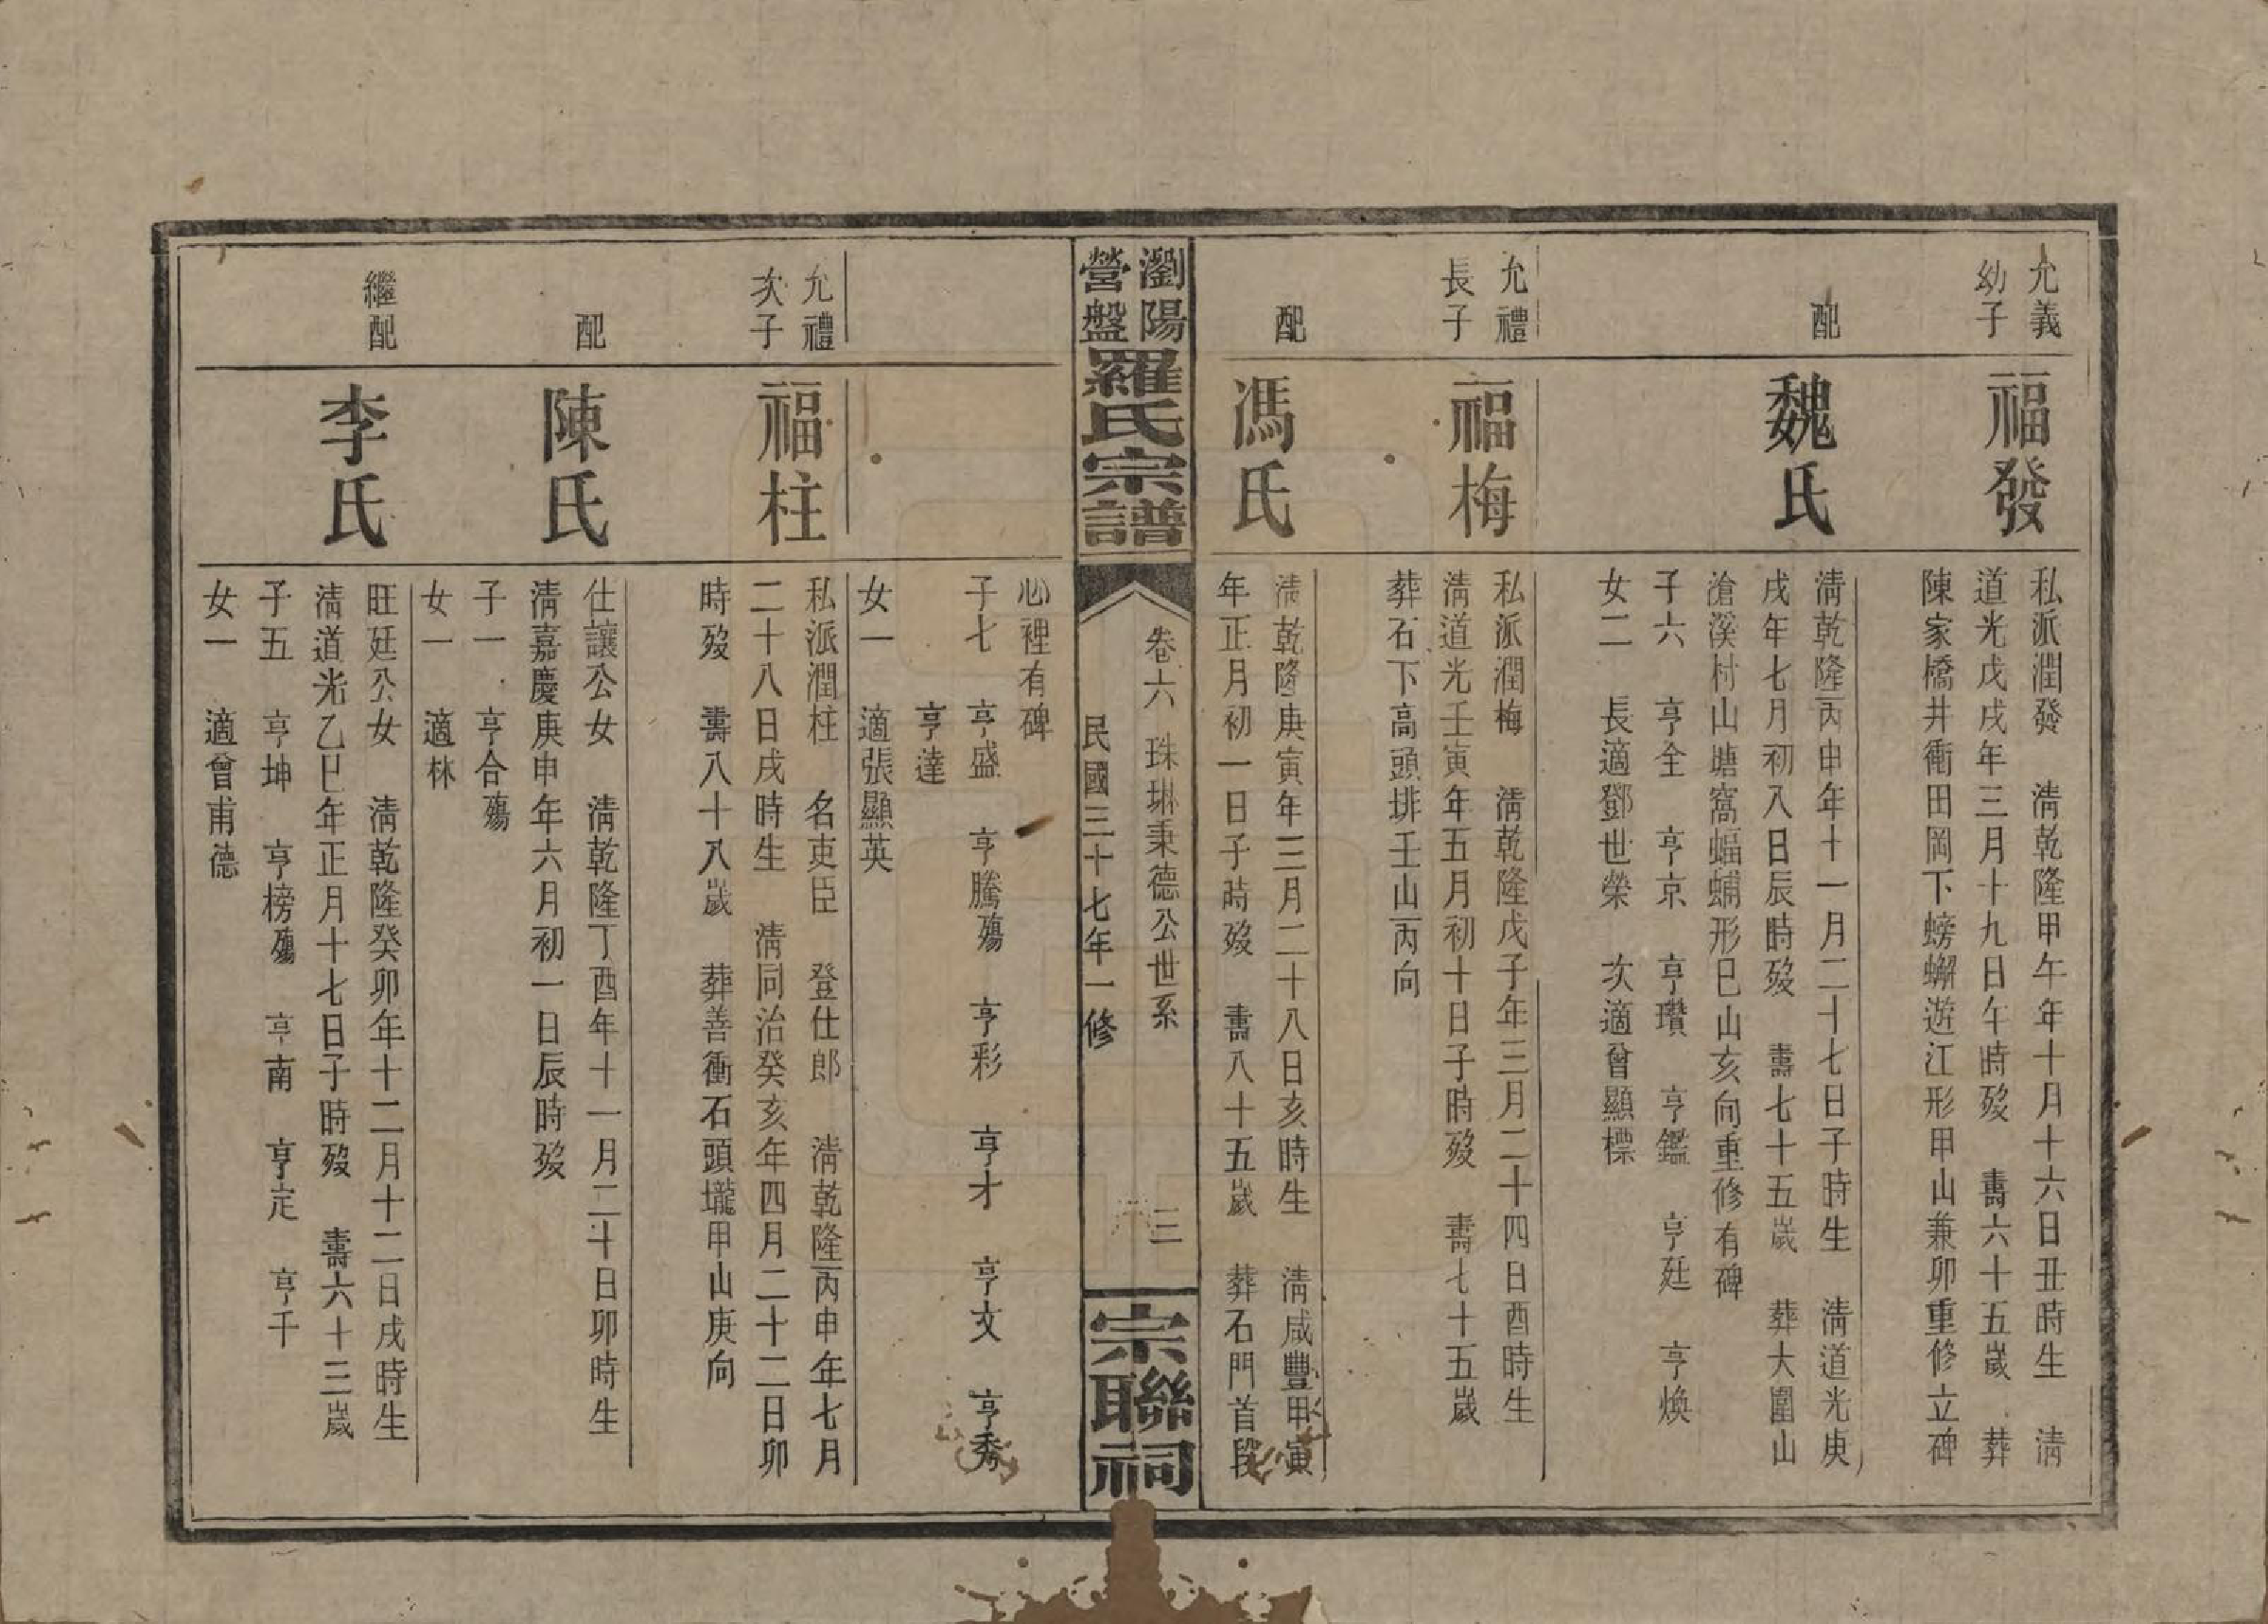 允義
幼子
福發
私派潤發　清乾隆甲午年十月十六日丑時生　清
道光戊戌年三月十九日午時歿　壽六十五歲　葬
陳家橋井衝田岡下螃蠏遊江形甲山兼卯重修立碑
配
魏氏
清乾隆丙申年十一月二十七日子時生　清道光庚
戌年七月初八日辰時歿　壽七十五歲　葬大圍山
滄溪村山塘窩蝠蝻形巳山亥向重修有碑
子六　亨全　亨京　亨瓚　亨鑑　亨廷　亨煥
女二　長適鄧世榮　次適曾顯標
允禮
長子
福梅
私派潤梅　清乾隆戊子年三月二十四日酉時生
清道光壬寅年五月初十日子時歿　壽七十五歲
葬石下高頭排壬山丙向
配
馮氏
清乾隆庚寅年三月二十八日亥時生　清咸豐甲寅
年正月初一日子時歿　壽八十五歲　葬石門首段
瀏陽
營盤
羅氏宗譜
卷六　珠琳秉德公世系　三
民國三十七年一修
宗聯祠
心裡有碑
子七　亨盛　亨騰殤　亨彩　亨才　亨文　亨秀
亨達
女一　適張顯英
允禮
次子
福柱
私派潤柱　名吏臣　登仕郎　清乾隆丙申年七月
二十八日戌時生　清同治癸亥年四月二十二日卯
時歿　壽八十八歲　葬善衝石頭壠甲山庚向
配
陳氏
仕讓公女　清乾隆丁酉年十一月二十日卯時生
清嘉慶庚申年六月初一日辰時歿
子一　亨合殤
女一　適林
繼配
李氏
旺廷公女　清乾隆癸卯年十二月十二日戌時生
清道光乙巳年正月十七日子時歿　壽六十三歲
子五　亨坤　亨榜殤　亨南　亨定　亨千
女一　適曾甫德